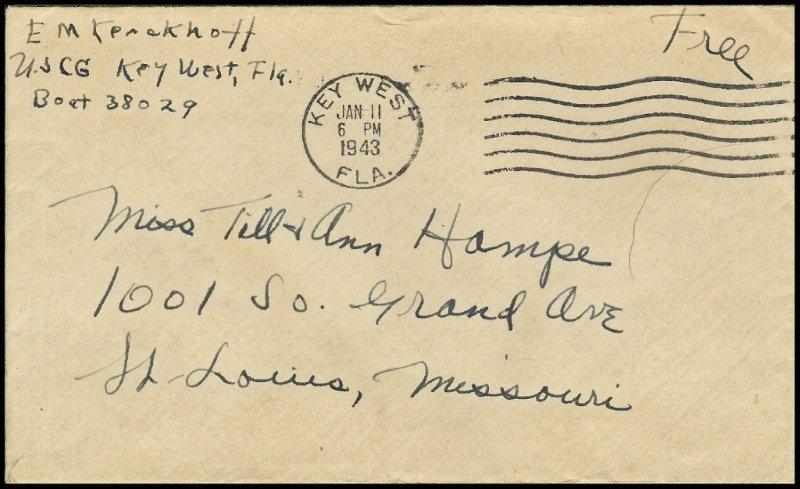 E M Kerckhoff
USCG Key West, Fla.
Boat 38029
Free
KEY WEST
JAN 11
6 PM
1943
FLA.
Miss Till & Ann Hampe
1001 So. Grand Ave
St. Louis, Missouri